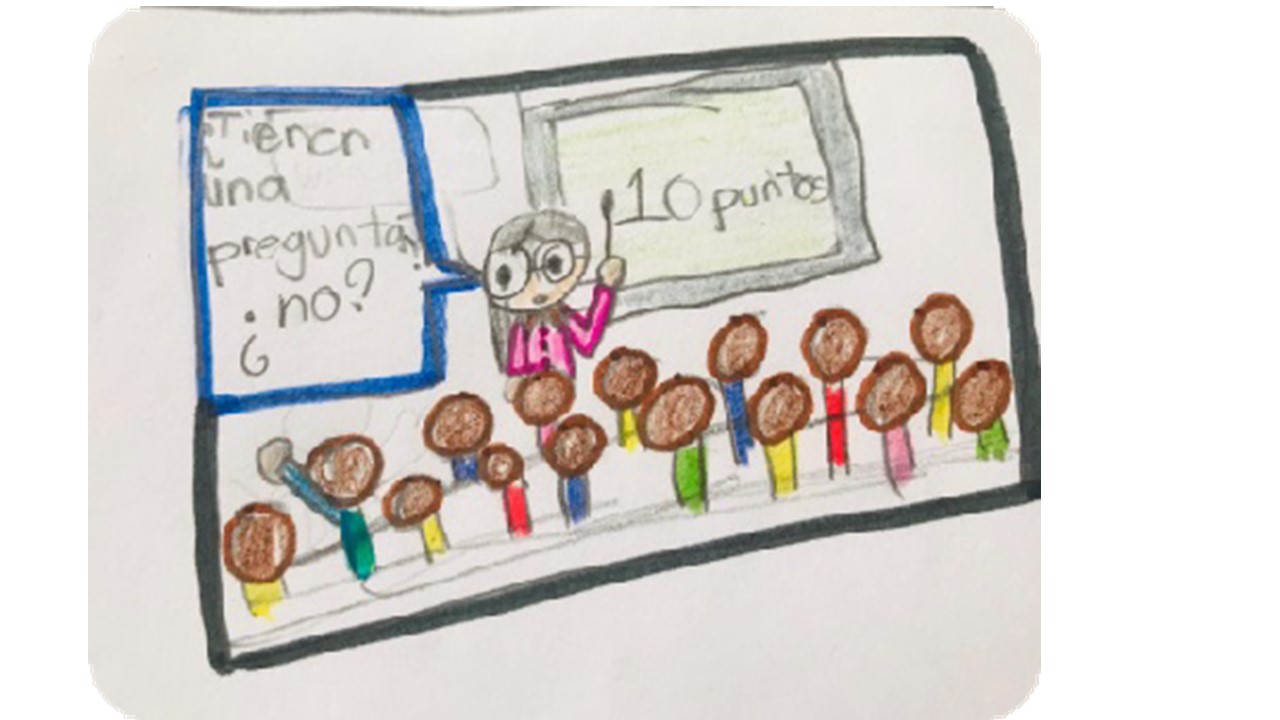 ¿Tienen
una
pregunta?
¿no?
10 puntos